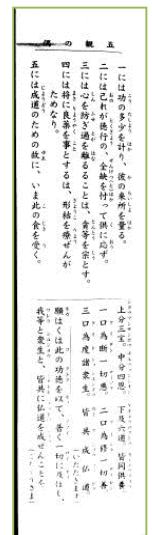 五観の偈
一には功の多少を計り、彼の来所を量る。
二には己れが徳行の、全缺を忖って供に応ず。
三には心を防ぎ過を離るることは、貪等を宗とす。
四には将に良薬を事とするは、形枯を療ぜんが
ためなり。
五には成道のための故に、いま此の食を受く。
上分三宝、中分四恩、下及六道、皆同供養
一口為断一切悪、二口為修一切善、
三口為度諸衆生、皆共成仏道
(いただきます)
願はくは此の功徳を以て、普く一切に及ぼし、
我等と衆生と、皆共に仏道を成ぜんことを
(ごちそうさま)